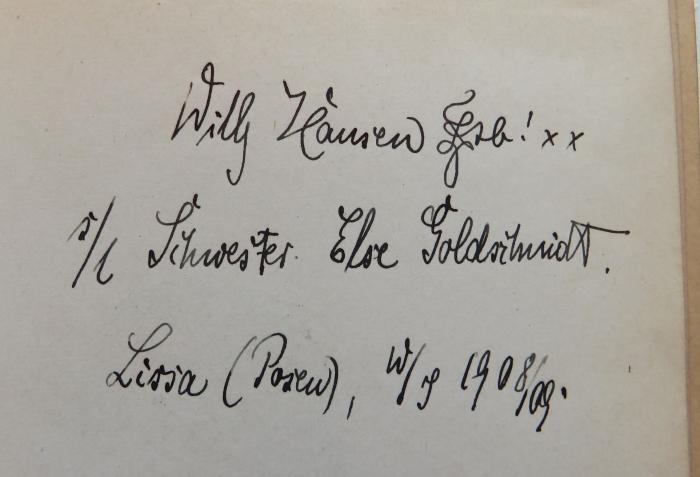 Willy Hansen Zsb! xx
s/l Schwester Else Goldschmidt.
Lissa (Posen), W/S 1908/09.